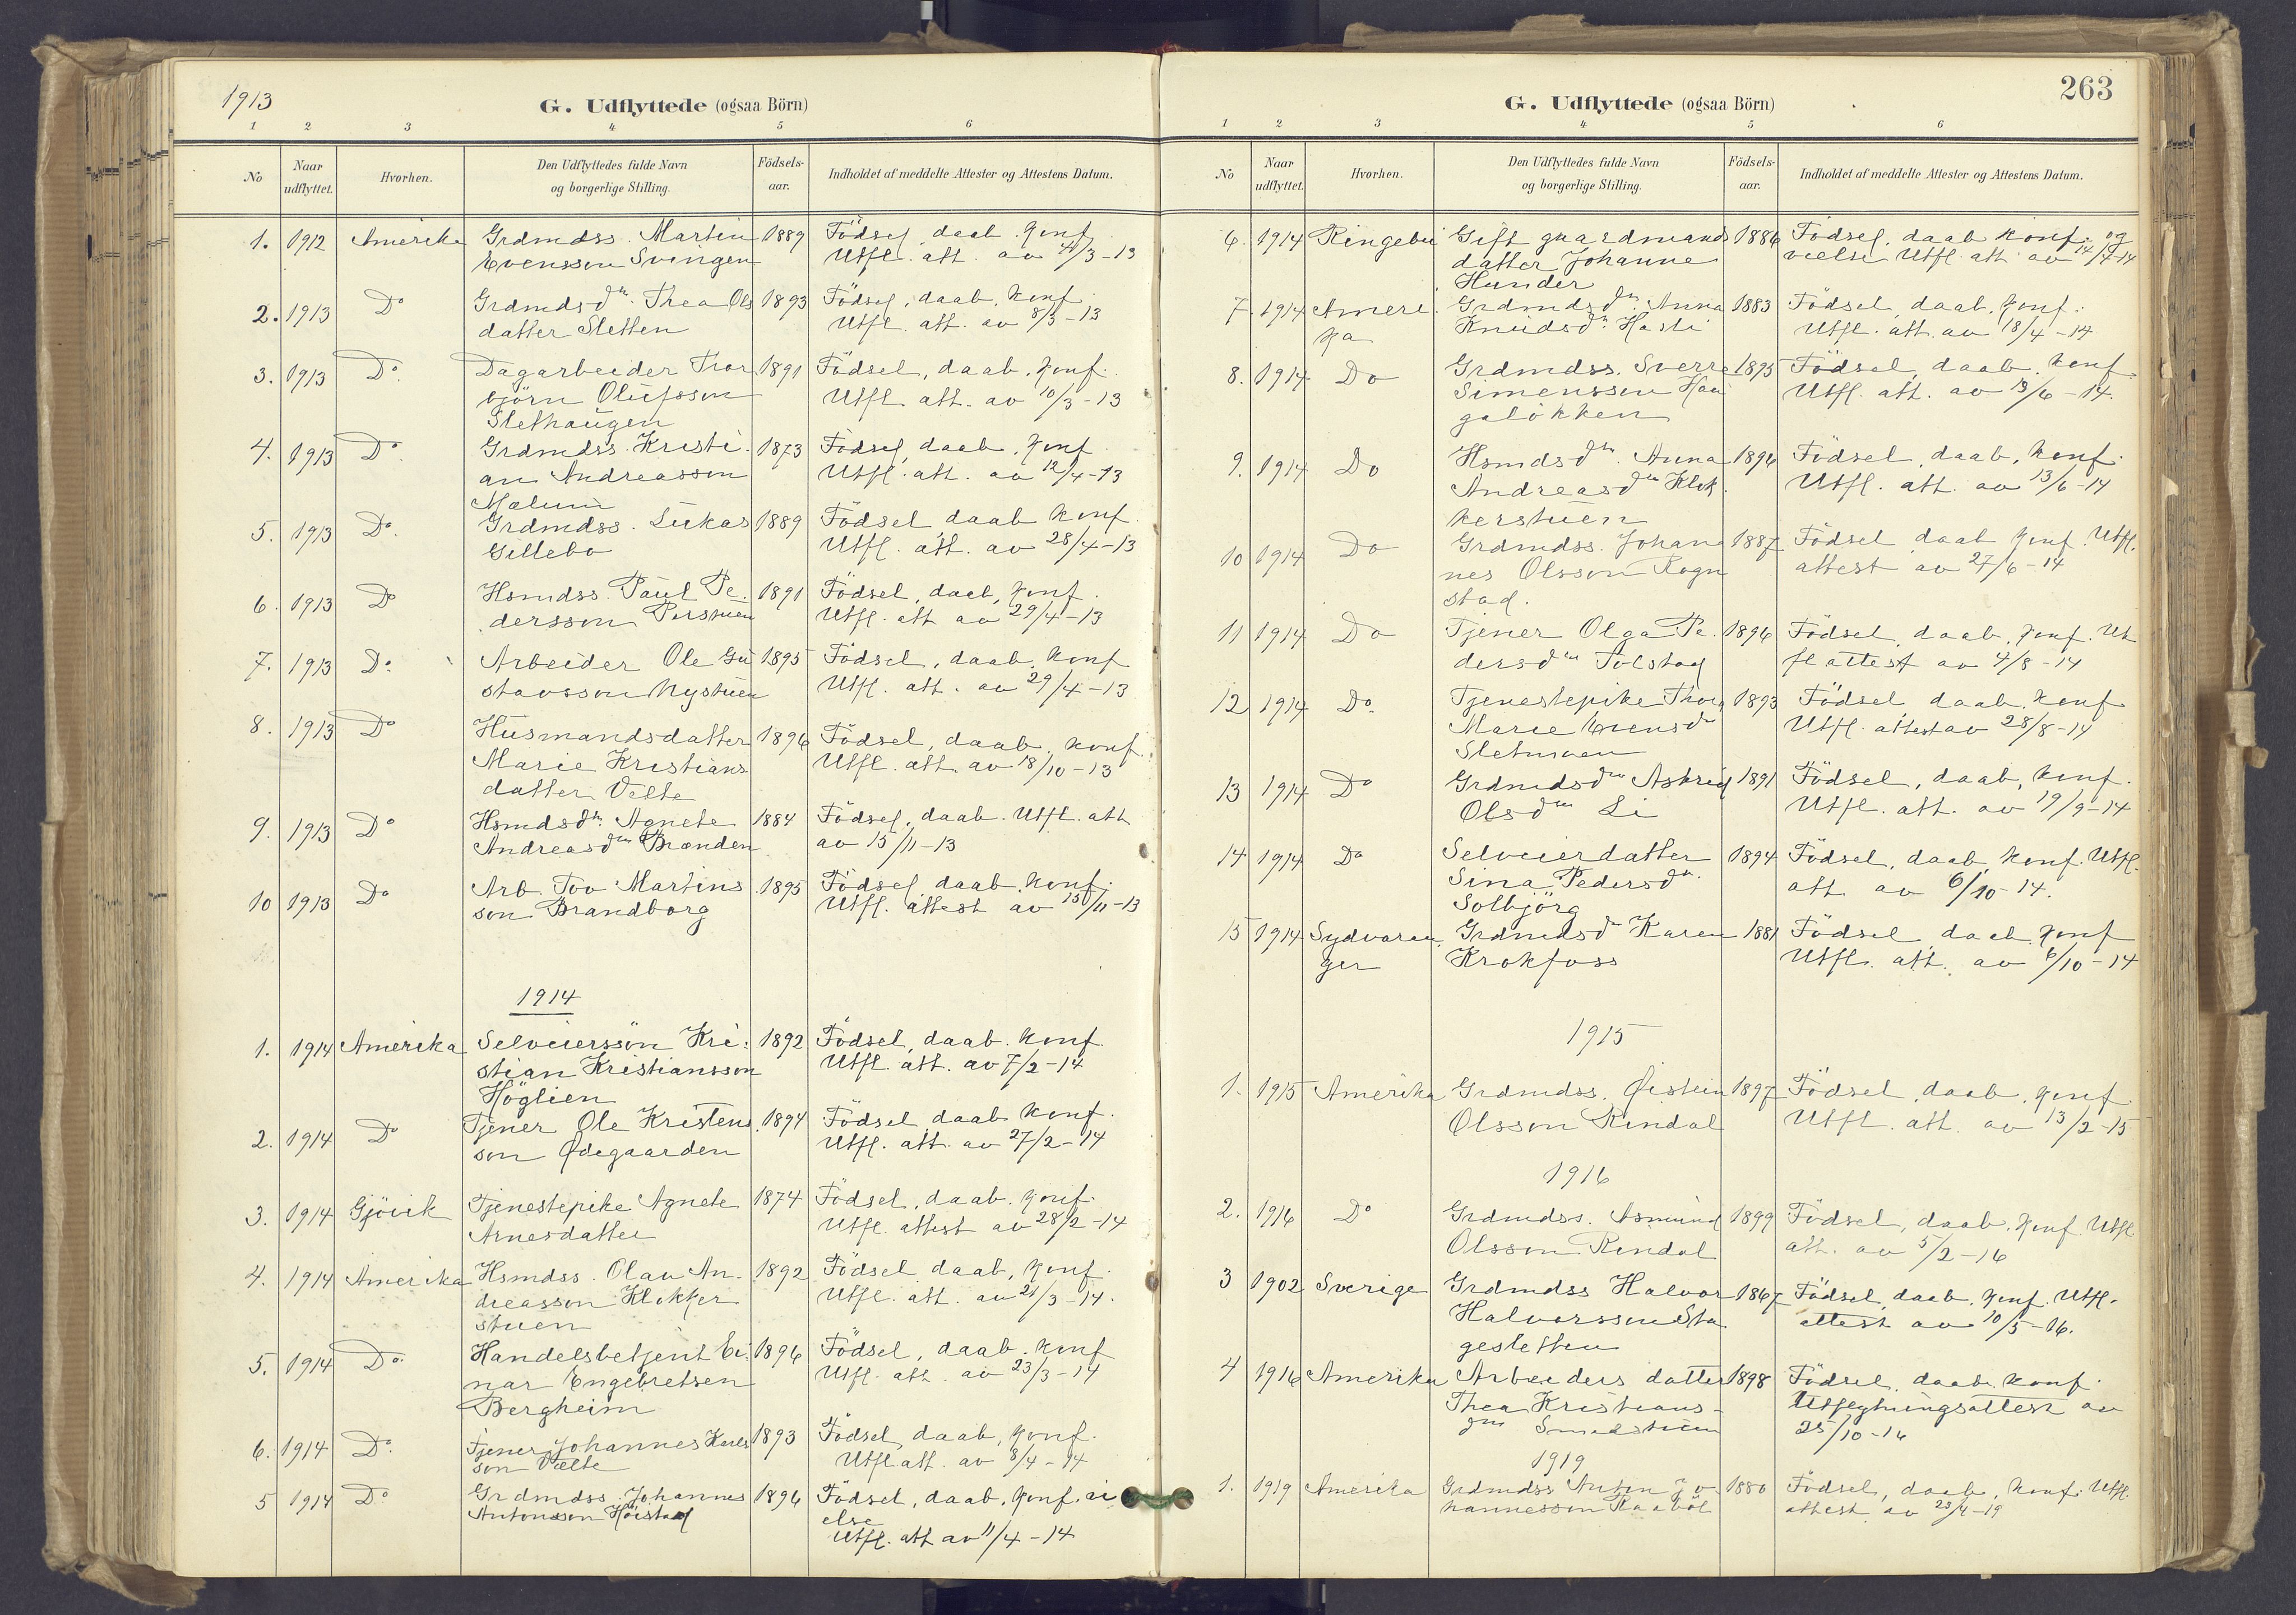 1913
G. Udflyttede (ogsaa Börn)
1 2 3 4 5 6
No Naar udflyttet. Hvorhen. Den Udflyttedes fulde Navn og borgerlige Stilling. Födsels-aar. Indholdet af meddelte Attester og Attestens Datum.
1. 1912 Amerika Grdmdss. Martin 1889 Födsel, daab. konf.
Evensson Svingen Utfl. att. av /3-13
2. 1913 Do Grdmdsdtr. Thea Ols 1893 Födsel, daab, konf.
datter Sletten Utfl. att. av 8/3-13
3. 1913 Do. Dagarbeider Tror 1891 Födsel, daab, konf.
björn Olufsson Utfl. att. av 10/3-13
Slethaugen
4. 1913 Do. Grdmdss. Kristi- 1873 Födsel, daab, konf.
an Andreasson Utfl. att. av 12/4-13
Mælum
5. 1913 Do. Grdmdss. Lukas 1889 Födsel, daab konf.
Gillebo Utfl. att. av 28/4-13
6. 1913 Do Hsmdss. Paul Pe- 1891 Födsel, daab, konf.
dersson Perstuen Utfl. att av 29/4-13
7. 1913 Do. Arbeider Ole Gu 1895 Födsel, daab, konf
stavsson Nystuen Utfl. att. av 29/4-13
8. 1913 Do Husmandsdatter 1896 Födsel, daab, konf.
Marie Kristians Utfl. att. av 18/10-13
datter Velte
9. 1913 Do Hsmdsdtr. Agnete 1884 Födsel, daab. Utfl. att
Andreasdtr Brænden av 15/11-13
10 1913 Do Arb. Tov Martins 1895 Födsel, daab, konf.
son Brandborg Utfl. attest av 15/11-13
1914
1. 1914 Amerika Selveiersön Kri- 1892 Födsel, daab. konf.
stian Kristiansson Utfl. att. av 7/2-14
Höglien
2. 1914 Do Tjener Ole Kristens 1894 Födsel, daab konf.
son Ødegaarden Utfl. att. av 27/2-14
3. 1914 Gjövik Tjenestepike Agnete 1874 Födsel, daab. konf.
Arnesdatter Utfl. attest av 28/2-14
4. 1914 Amerika Hsmdss. Olav An- 1892 Födsel daab, konf.
dreasson Klokker Utfl. att. av 21/3-14.
stuen
5. 1914 Do. Handelsbetjent Ei- 1896 Födsel, daab. konf
nar Engebretsen Utfl. att. av 23/3-14
Bergheim
6. 1914 Do. Tjener Johannes Karls 1893 Födsel, daab, konf.
son Velte Utfl att. av 8/4-14
5 1914 Do Grdmdss. Johannes 1896 Födsel, daab, konf. vi
Antonsson Höistad else
Utfl. att av 11/4-14
263
G. Udflyttede (ogsaa Börn)
1 2 3 4 5 6
No Naar udflyttet. Hvorhen. Den Udflyttedes fulde Navn og borgerlige Stilling. Födsels-aar. Indholdet af meddelte Attester og Attestens Datum.
6. 1914 Ringebu Gift gaardmands 1886 Födsel, daab konf. og
datter Johanne vielse Utfl. att av 14/4-14
Hunder
7. 1914 Ameri- Grdmdsdtr. Anna 1883 Födsel, daab, konf.
ka Knudsdtr. Hasli Utfl. att. av 18/4-14
8. 1914 Do Grdmdss. Sverre 1895 Födsel, daab. konf.
Simensson Hau Utfl. att. av 13/6-14.
galökken
9. 1914 Do Hsmdsdtr. Anna 1896 Födsel, daab, konf.
Andreasdtr Klok- Utfl. att. av 13/6-14
kerstuen
10 1914 Do Grdmdss. Johan 1887 Födsel daab konf. Utfl.
nes Olsson Rogn attest av 27/6-14
stad.
11 1914 Do Tjener Olga Pe- 1896 Födsel, daab, konf. Ut
dersdtr Tolstad fl attest av 4/8-14
12 1914 Do. Tjenestepike Thora 1893 Födsel daab. konf
Marie Evensdtr Utfl. attest av 28/8-14
Sletmoen
13 1914 Do Grdmdsdtr Astrid 1891 Födsel, daab, konf.
Olsdtr Li Utfl. att. av 19/9-14
14 1914 Do Selveierdatter 1894 Födsel, daab, konf. Utfl.
Sina Pedersdtr. att. av 6/10-14.
Solbjörg
15 1914 Sydvaran Grdmdsdtr Karen 1881 Födsel daab konf
ger Krokfoss Utfl. att. av 6/10-14
1915
1. 1915 Amerika Grdmdss. Øistein 1897 Födsel, daab, konf
Olsson Rindal Utfl. att. av 13/2-15
1916
2. 1916 Do Grdmdss. Asmund 1899 Födsel, daab. konf. Utfl
Olsson Rindal att. av 5/2-16
3 1902 Sverige Grdmdss Halvor 1867 Födsel, daab. konf. Utfl.
Halvorsson Sta attest av 10/5-16.
gesletten
4 1916 Amerika Arbeiders datter 1898 Födsel, daab. konf.
Thea Kristians- Utflytningsattest av
dtr Smedstuen 25/10-16
1919
1. 1919 Amerika Grdmdss Anton Jo 1880 Födsel, daab, konf. Utfl.
hannesson Raaböl attest av 23/4-19